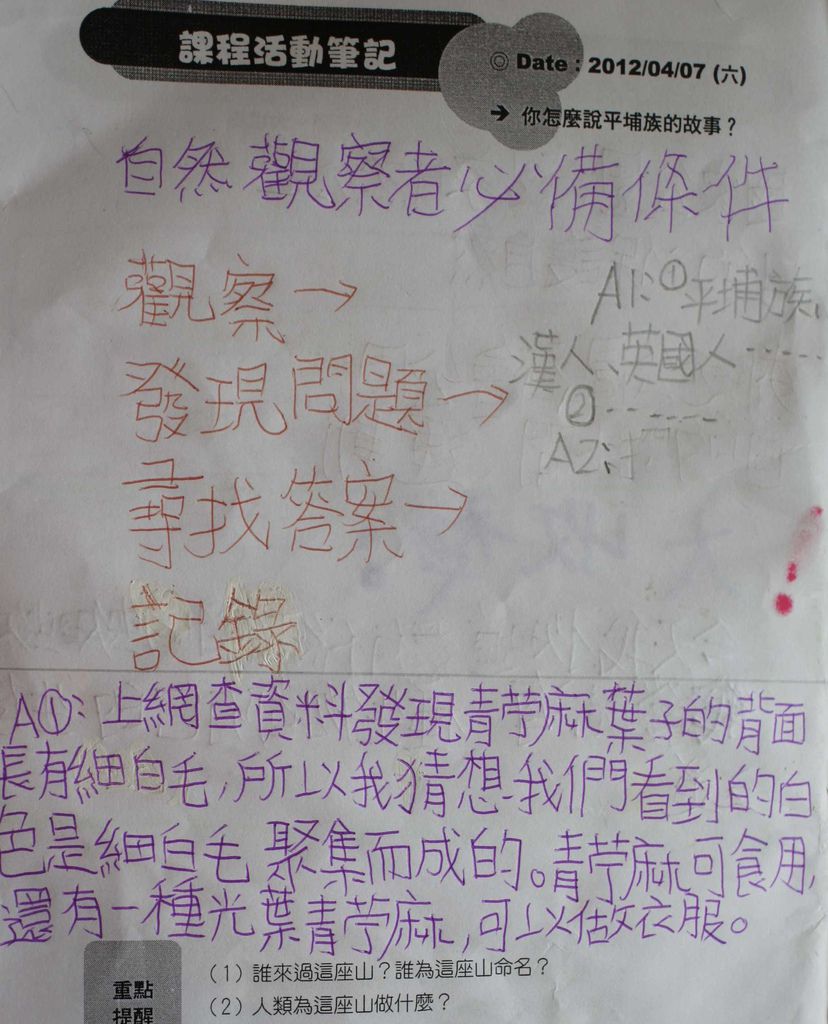 課程活動筆記
◎ Date：2012/04/07 (六)
➔ 你怎麼說平埔族的故事？
自然觀察者必備條件
觀察→
A1:①平埔族、
漢人、英國人-----
發現問題→
②------
A2:
尋找答案→
記錄
A①:上網查資料發現青苧麻葉子的背面
長有細白毛,所以我猜想我們看到的白
色是細白毛聚集而成的。青苧麻可食用,
還有一種光葉青苧麻,可以做衣服。
重點
提醒
（1）誰來過這座山？誰為這座山命名？
（2）人類為這座山做什麼？